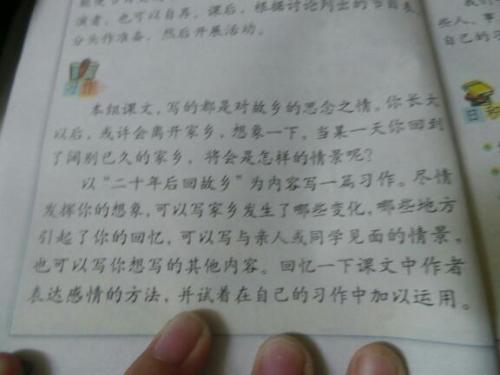 演者,也可以自荐,课后,根据讨论列出的节目表
分头作准备,然后开展活动。
习作
本组课文,写的都是对故乡的思念之情。你长大
以后,或许会离开家乡,想象一下,当某一天你回到
了阔别已久的家乡,将会是怎样的情景呢?
以“二十年后回故乡”为内容写一篇习作。尽情
发挥你的想象,可以写家乡发生了哪些变化,哪些地方
引起了你的回忆,可以写与亲人或同学见面的情景,
也可以写你想写的其他内容。回忆一下课文中作者
表达感情的方法,并试着在自己的习作中加以运用。
些人、事
自己的习
日积